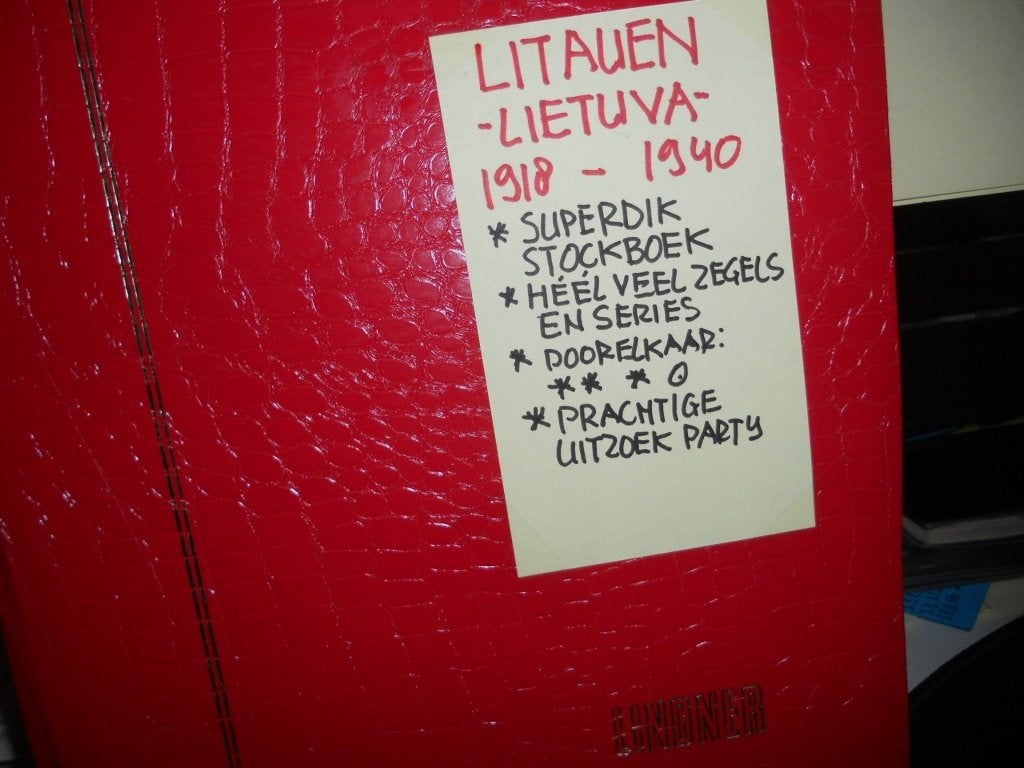 LITAUEN
-LIETUVA-
1918 - 1940
* SUPERDIK
STOCKBOEK
* HÉÉL VEEL ZEGELS
EN SERIES
* DOORELKAAR:
** * O
* PRACHTIGE
UITZOEK PARTY
LINDNER